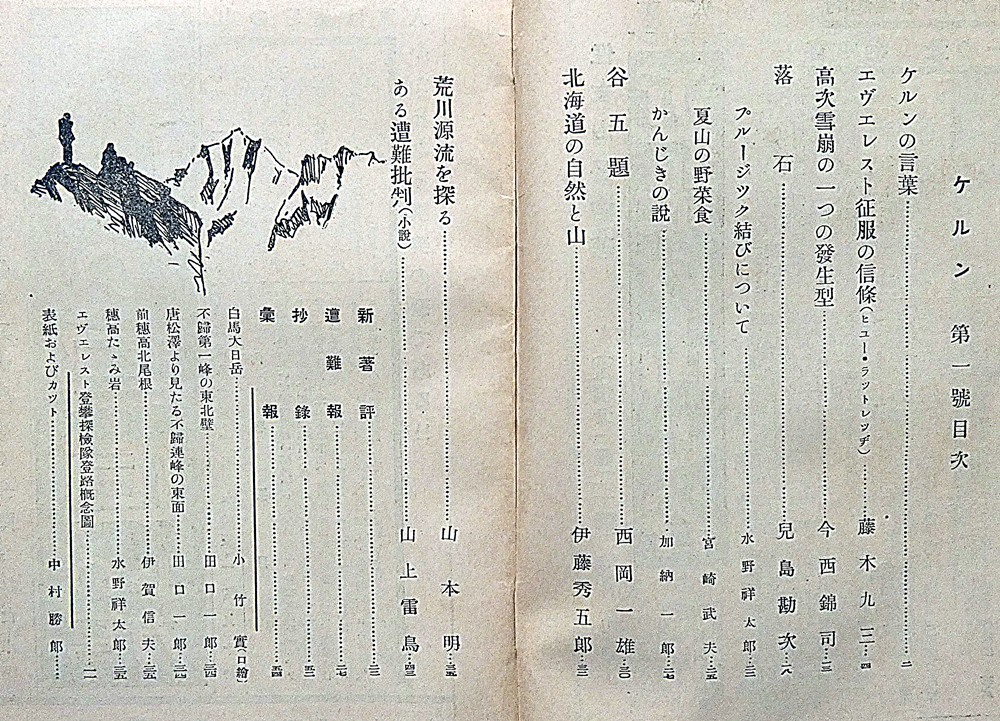 ケルン 第一號目次
ケルンの言葉………一
エヴエレスト征服の信條(ヒュー・ラツトレツヂ)………藤木九三…四
高次雪崩の一つの發生型………今西錦司…
落石………兒島勘次…
プルージツク結びについて………水野祥太郎…
夏山の野菜食………宮崎武夫…
かんじきの說………加納一郎…
谷五題………西岡一雄…
北海道の自然と山………伊藤秀五郎…
荒川源流を探る………山本明…
ある遭難批判(小說)………山上雷鳥…
新著評………
遭難報………
抄錄………
彙報………
白馬大日岳………小竹實(口繪)
不歸第一峰の東北壁………田口一郎…
唐松澤より見たる不歸連峰の東面………田口一郎…
前穗高北尾根………伊賀信夫…
穗高たゝみ岩………水野祥太郎…
エヴエレスト登攀探檢隊登路槪念圖………
表紙およびカツト………中村勝郎……